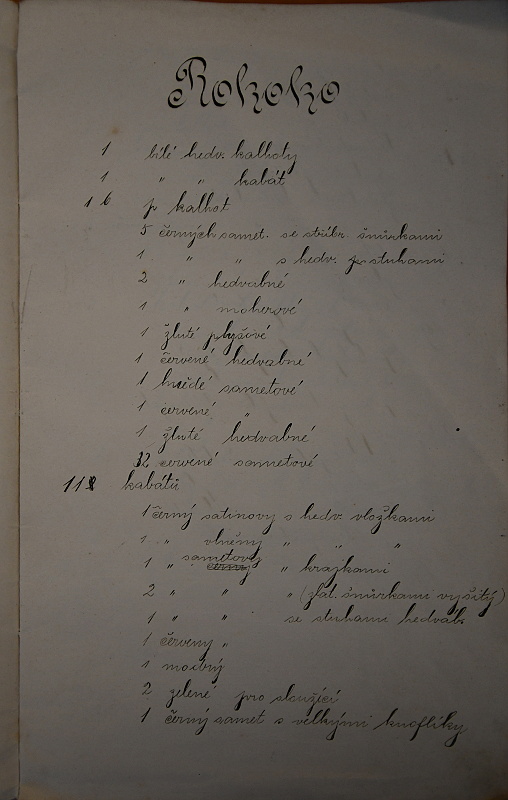 Rokoko
1 bílé hedv. kalhoty
1 " " kabát
16 p. kalhot
5 černých samet. se stříbr. šňůrkami
1 " " s hedv. stuhami
2 " hedvábné
1 " moherové
1 žluté plyšové
1 červené hedvábné
1 hnědé sametové
1 červené "
1 žluté hedvábné
2 červené sametové
11 kabátů
1 černý satinový s hedv. vložkami
1 " vlněný " " "
1 " sametový " krajkami
2 " " " (zlat. šňůrkami vyšitý)
1 " " se stuhami hedváb.
1 červený "
1 modrý
2 zelené pro sloužící
1 černý samet s velkými knoflíky